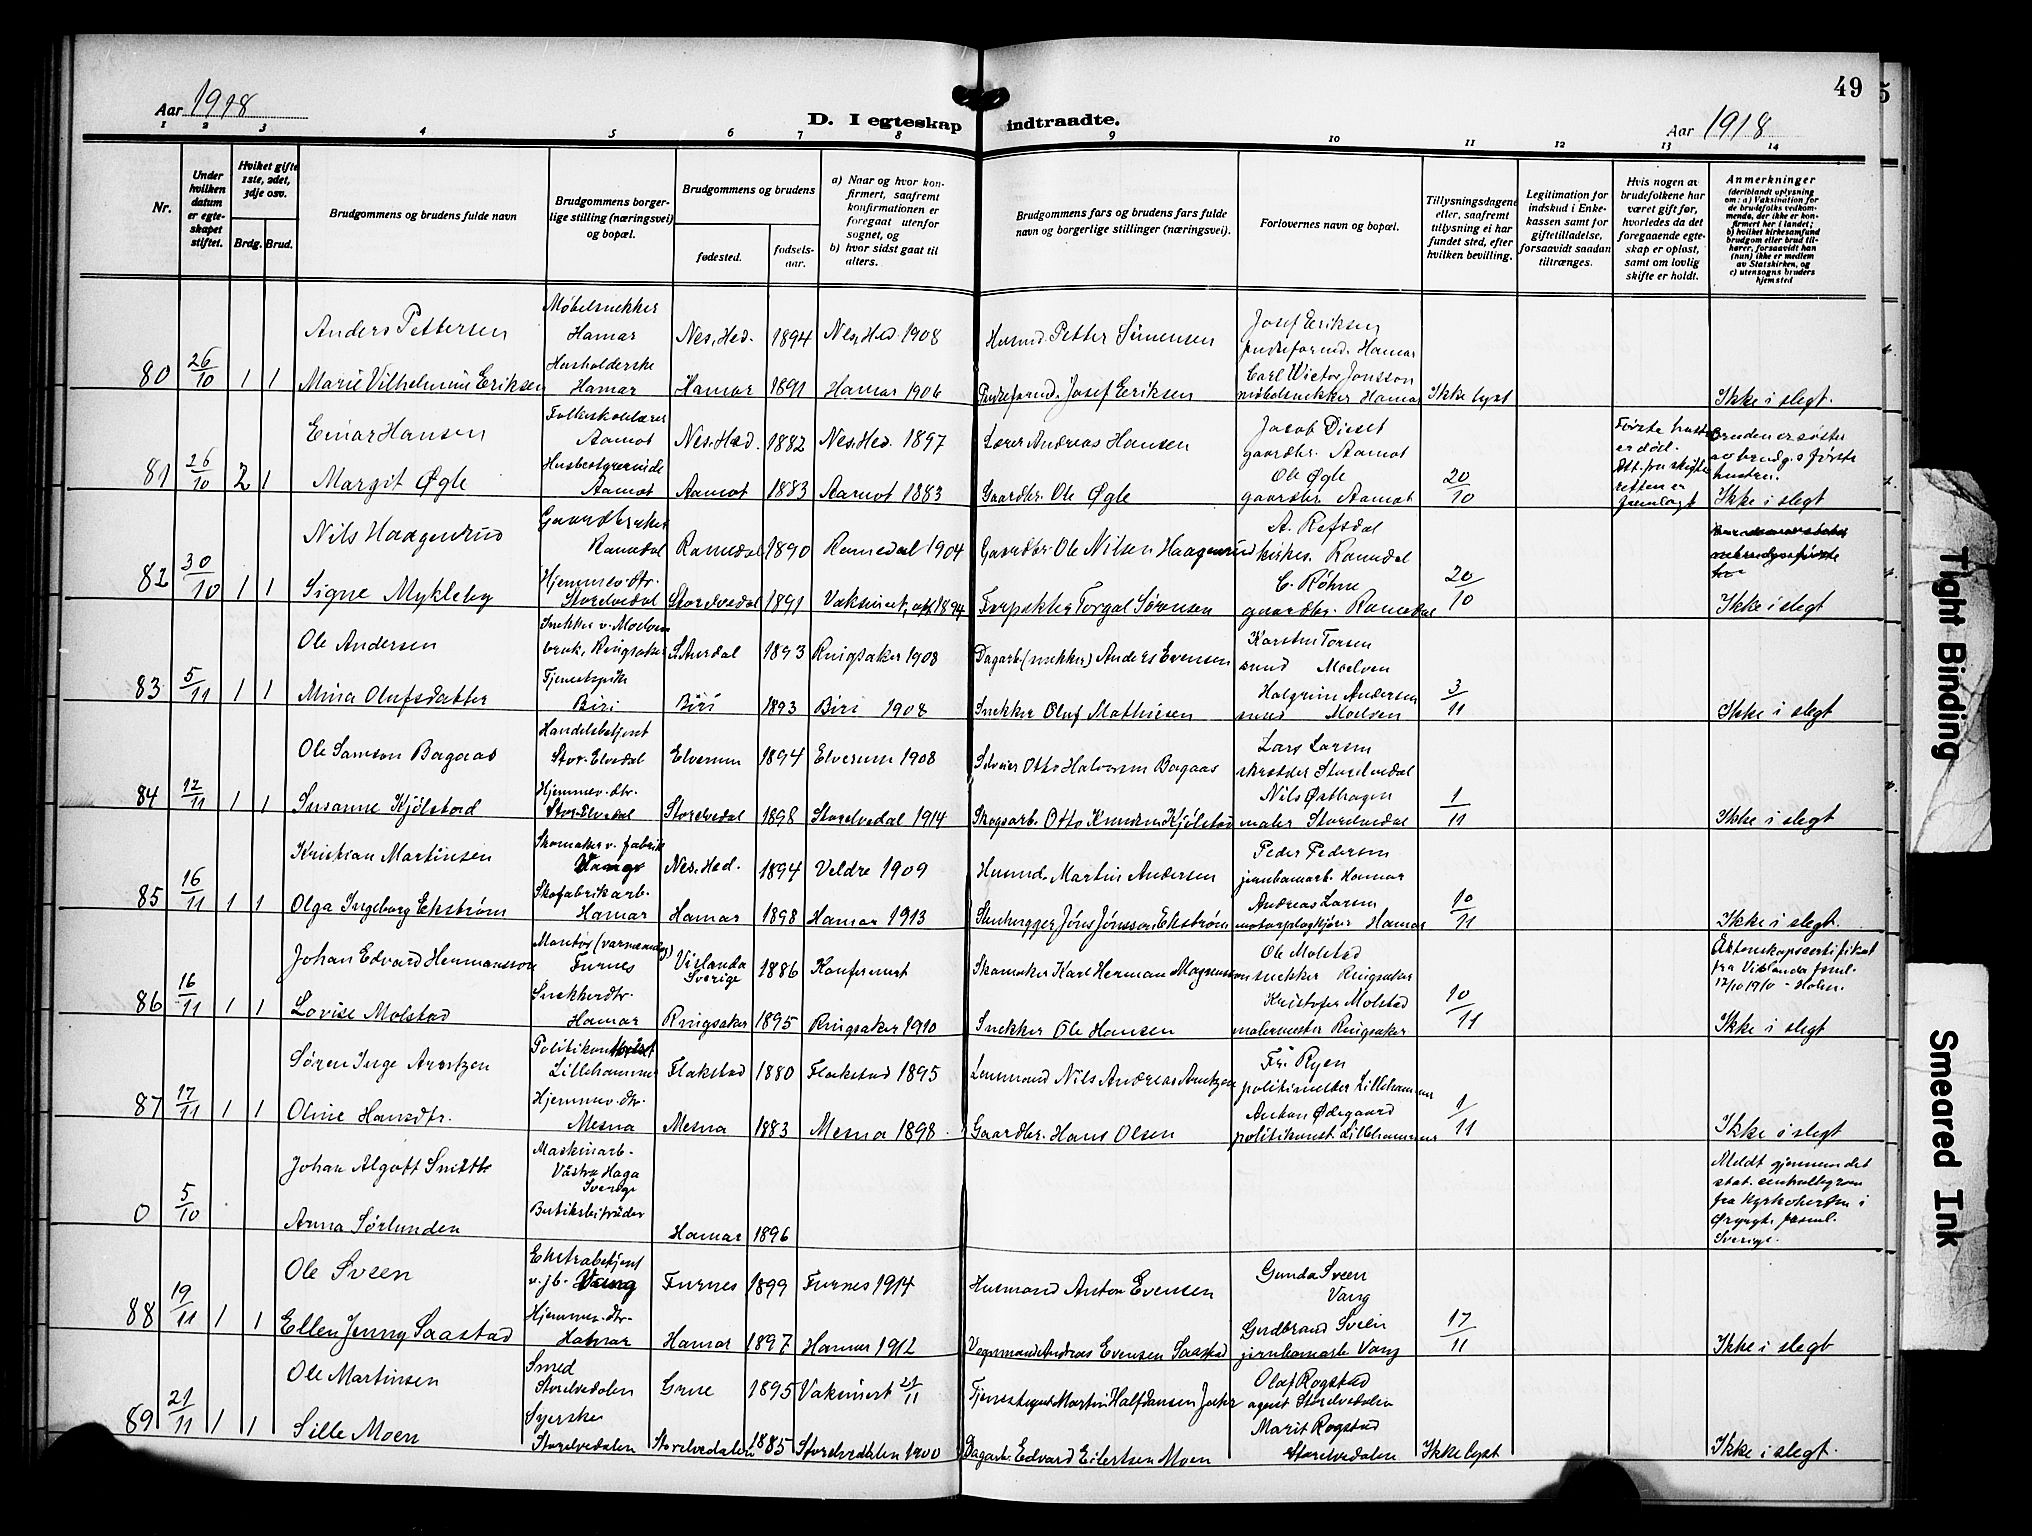 49
5
Aar 1918
D. I egteskap indtraadte.
Aar 1918
1 2 3 4 5 6 7 8 9 10 11 12 13 14
Nr.
Under hvilken datum er egteskapet stiftet.
Hvilket gifte 1ste, 2det, 3dje osv.
Brdg. Brud.
Brudgommens og brudens fulde navn
Brudgommens borgerlige stilling (næringsvei) og bopæl.
Brudgommens og brudens
fødested.
fødselsaar.
a) Naar og hvor konfirmert, saafremt konfirmationen er foregaat utenfor sognet, og
b) hvor sidst gaat til alters.
Brudgommens fars og brudens fars fulde navn og borgerlige stillinger (næringsvei).
Forlovernes navn og bopæl.
Tillysningsdagene eller, saafremt tillysning ei har fundet sted, efter hvilken bevilling.
Legitimation for indskud i Enkekassen samt for giftetilladelse, forsaavidt saadan tiltrænges.
Hvis nogen av brudefolkene har været gift før, hvorledes da det foregaaende egteskap er opløst, samt om lovlig skifte er holdt.
Anmerkninger
(deriblandt oplysning om: a) Vaksination for de brudefolks vedkommende, der ikke er konfirmert her i landet; b) hvilket kirkesamfund brudgom eller brud tilhører, forsaavidt han (hun) ikke er medlem av Statskirken, og c) utensogns bruders hjemsted
80 26/10 1 1
Anders Pettersen Møbelsnekker Hamar Nes, Hed. 1894 Nes, Hed 1908 Husmd. Petter Simensen Josef Eriksen pudseformd. Hamar
Marie Vilhelmine Eriksen Husholderske Hamar Hamar 1891 Hamar 1906 Pudseformd. Josef Eriksen Carl Victor Jonsson møbelsnekker Hamar Ikke lyst Ikke i slegt.
81 26/10 2 1
Einar Hansen Folkeskolelærer Aamot Nes, Hed. 1882 Nes, Hed. 1897 Lærer Andreas Hansen Jacob Diset gaardbr. Aamot Første hustru er død. Att. fra skifteretten er fremlagt Bruden er søster av brudg.s første hustru.
Margit Øgle Husbestyrerinde Aamot Aamot 1883 Aamot 1883 Gaardbr. Ole Øgle Ole Øgle gaardbr. Aamot 20/10 Ikke i slegt
82 30/10 1 1
Nils Haagenrud Gaardbruker Romedal Romedal 1890 Romedal 1904 Gaardbr. Ole Nilsen Haagenrud A. Refsdal kirkes. Romedal
Signe Mykleby Hjemmev. dtr. Storelvedal Storelvedal 1891 Vaksinert 1894 Forpakter Torgal Sørensen C. Røhne gaardbr. Romedal 20/10 Ikke i slegt
83 5/11 1 1
Ole Andersen Snekker v. Moelven bruk, Ringsaker S. Aurdal 1893 Ringsaker 1908 Dagarb. (snekker) Anders Evensen Karsten Torsen smed Moelven
Mina Olufsdatter Tjenestepike Biri Biri 1893 Biri 1908 Snekker Oluf Mathiesen Halgrim Andersen smed Moelven 3/11 Ikke i slegt
84 12/11 1 1
Ole Samson Bagaas Handelsbetjent Stor-Elvedal Elverum 1894 Elverum 1908 Otto Halvorsen Bagaas Lars Larsen skrædder Storelvedal
Susanne Kjølstad Hjemmev. dtr. Stor-Elvedal Storelvedal 1898 Storelvedal 1914 Skogsarb. Otto Knudsen Kjølstad Nils Østhagen maler Storelvedal 1/11 Ikke i slegt
85 16/11 1 1
Kristian Martinsen Skomaker v. fabrik Vang Nes, Hed. 1894 Veldre 1909 Husmd. Martin Andersen Peder Pedersen jernbanearb. Hamar
Olga Ingeborg Ekstrøm Skofabrikarb. Hamar Hamar 1898 Hamar 1913 Stenhugger Jöns Jönsson Ekström Andreas Larsen motorplogkjører Hamar 10/11 Ikke i slegt.
86 16/11 1 1
Johan Edvard Hermansson Montør Furnes Vislanda Sverige 1886 Konfirmert Skomaker Karl Herman Magnusson Ole Molstad snekker Ringsaker Äktenskapscertifikat fra Vislanda
Lovise Molstad Snekkerdtr. Hamar Ringsaker 1895 Ringsaker 1910 Snekker Ole Hansen Kristofer Molstad malermester Ringsaker 10/11 Ikke i slegt
87 17/11 1 1
Søren Inge Arntzen Lillehammer Flakstad 1880 Flakstad 1895 Lensmand Nils Andreas Arntzen Fr. Ryen politimester Lillehammer
Oline Hansdtr. Hjemmev. dtr. Mesna Mesna 1883 Mesna 1898 Gaardbr. Hans Olsen Anton Ødegaard politikonst. Lillehammer 1/11 Ikke i slegt
0 5/10
Johan Algott Maskinarb. Västra Haga Sverige Meldt gjennem det stat. sentralbyraa fra Kyrkoherden i Sverige.
Anna Sørlunden Hamar 1896
88 19/11 1 1
Ole Sveen Ekstrabetjent v. jb. Vang Furnes 1899 Furnes 1914 Husmand Anton Evensen Gunda Sveen Vang
Ellen Jenny Saastad Hjemmev. dtr. Hamar Hamar 1897 Hamar 1912 Vognmand Andreas Evensen Saastad Gudbrand Sveen jernbanearb. Vang 17/11 Ikke i slegt
89 21/11 1 1
Ole Martinsen Smed Storelvedalen Grue 1895 Vaksinert 21/11 Martin Halfdansen Olaf Rogstad agent Storelvedalen
Sille Moen Syerske Storelvedalen Storelvedalen 1885 Storelvedalen 1900 Dagarb. Edvard Eilertsen Moen Marit Rogstad Storelvedalen Ikke lyst Ikke i slegt.
Tight Binding
Smeared Ink